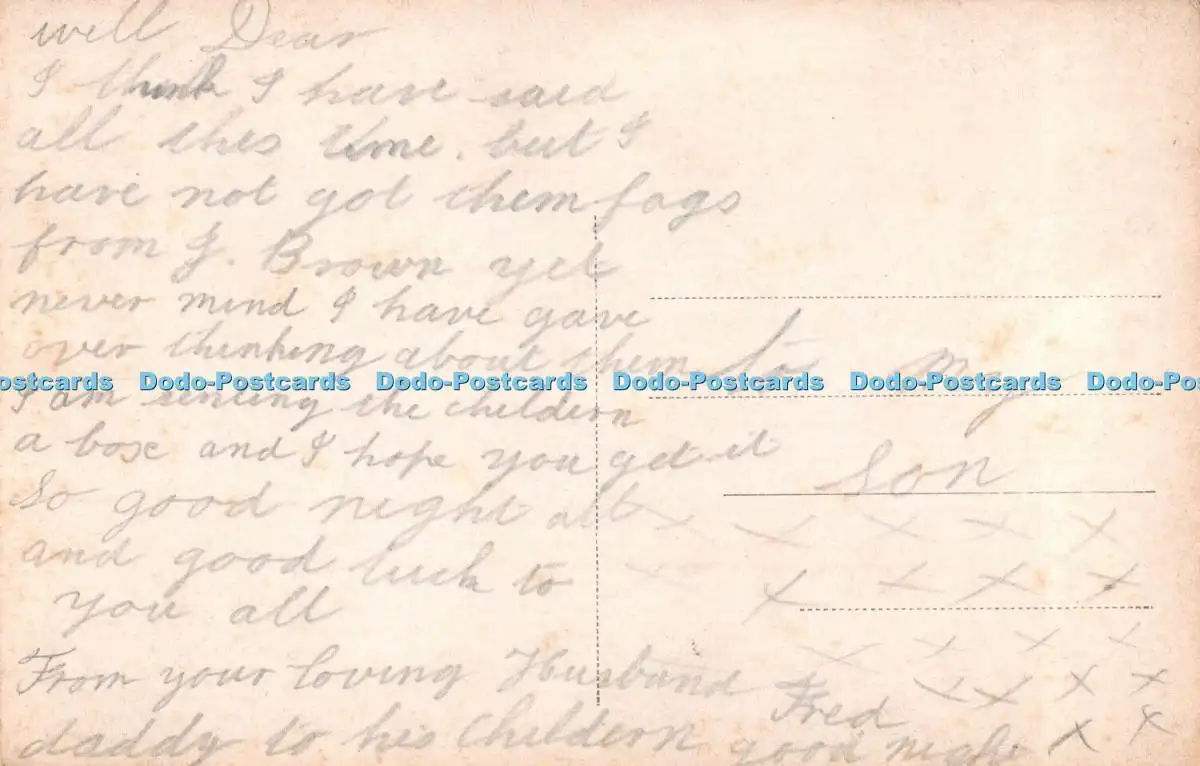 will Dear
I think I have said
all thes time. but I
have not got them fags
from J. Brown yet
never mind I have gave
over thinking about them
I am senting the childern
a box and I hope you get it
So good night all
and good luck to
you all
From your loving Husband Fred
daddy to his childern good night
to my
son
x x x x x
x x x x x
x x x x
x x x x
x x
Dodo-Postcards Dodo-Postcards Dodo-Postcards Dodo-Postcards Dodo-Postcards Dodo-Po